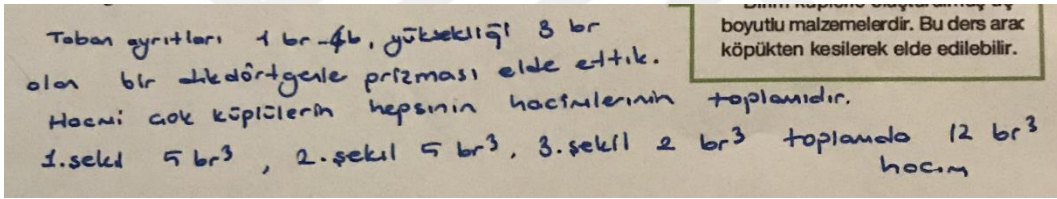 boyutlu malzemelerdir. Bu ders arac
köpükten kesilerek elde edilebilir.
Taban ayrıtları 1 br - 4b, yüksekliği 3 br
olan bir dikdörtgenle prizması elde ettik.
Hacmi çok küplülerin hepsinin hacimlerinin toplamıdır.
1.şekil 5 br³, 2.şekil 5 br³, 3.şekil 2 br³ toplamda 12 br³
hacım